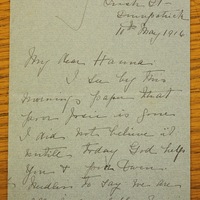 Irish St.
Downpatrick
10th May 1916
My dear Hanna
I see by this
mornings paper that
poor Frank is gone
I did not believe it
untill today God help
You &
Needless to say we are